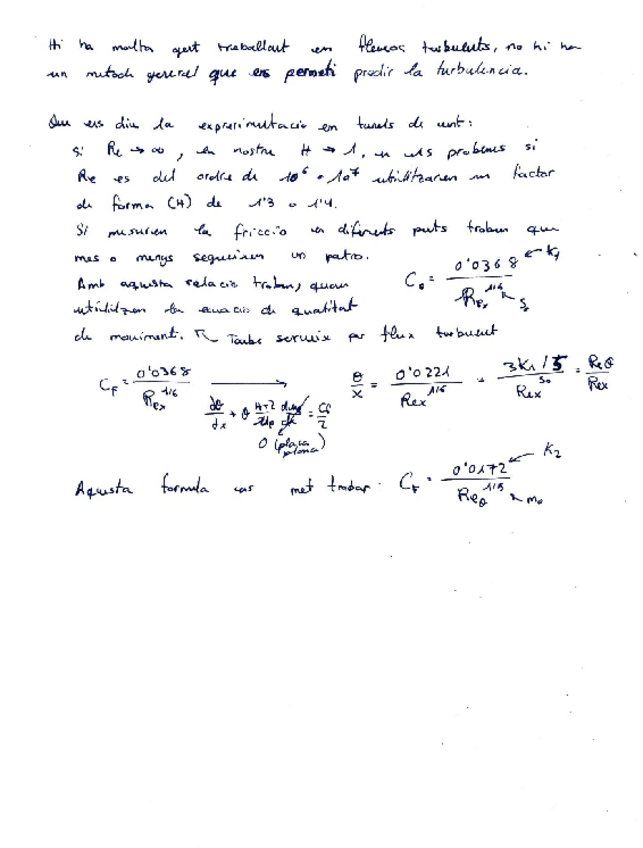 Hi ha molta gent treballant en fluxos turbulents, no hi ha
un metode general que ens permeti predir la turbulencia.
Que ens diu la experimentacio en tunels de vent:
Si Re → ∞, en nostre H → 1, en els problemes si
Re es del ordre de 10^6 o 10^7 utilitzarem un factor
de forma (H) de 1'3 o 1'4.
Si mesurem la friccio en diferents punts trobem que
mes o menys segueixen un patro.
Amb aquesta relacio trobem, quan
utilitzem la equacio de quantitat
de moviment. ↖ Tambe serveix per flux turbulent
C_f = 0'0368 / Re_x^{1/6} ← K_1
C_F = 0'0368 / Re_x^{1/6} → θ/x = 0'0221 / Re_x^{1/6} = 3K_1/5 / Re_x = Re_θ / Re_x
dθ/dx + θ H+2 = C_f/2
0 (placa plana)
Aquesta formula ens met trobar · C_F = 0'0172 / Re_θ^{1/5} ← K_2, m_0